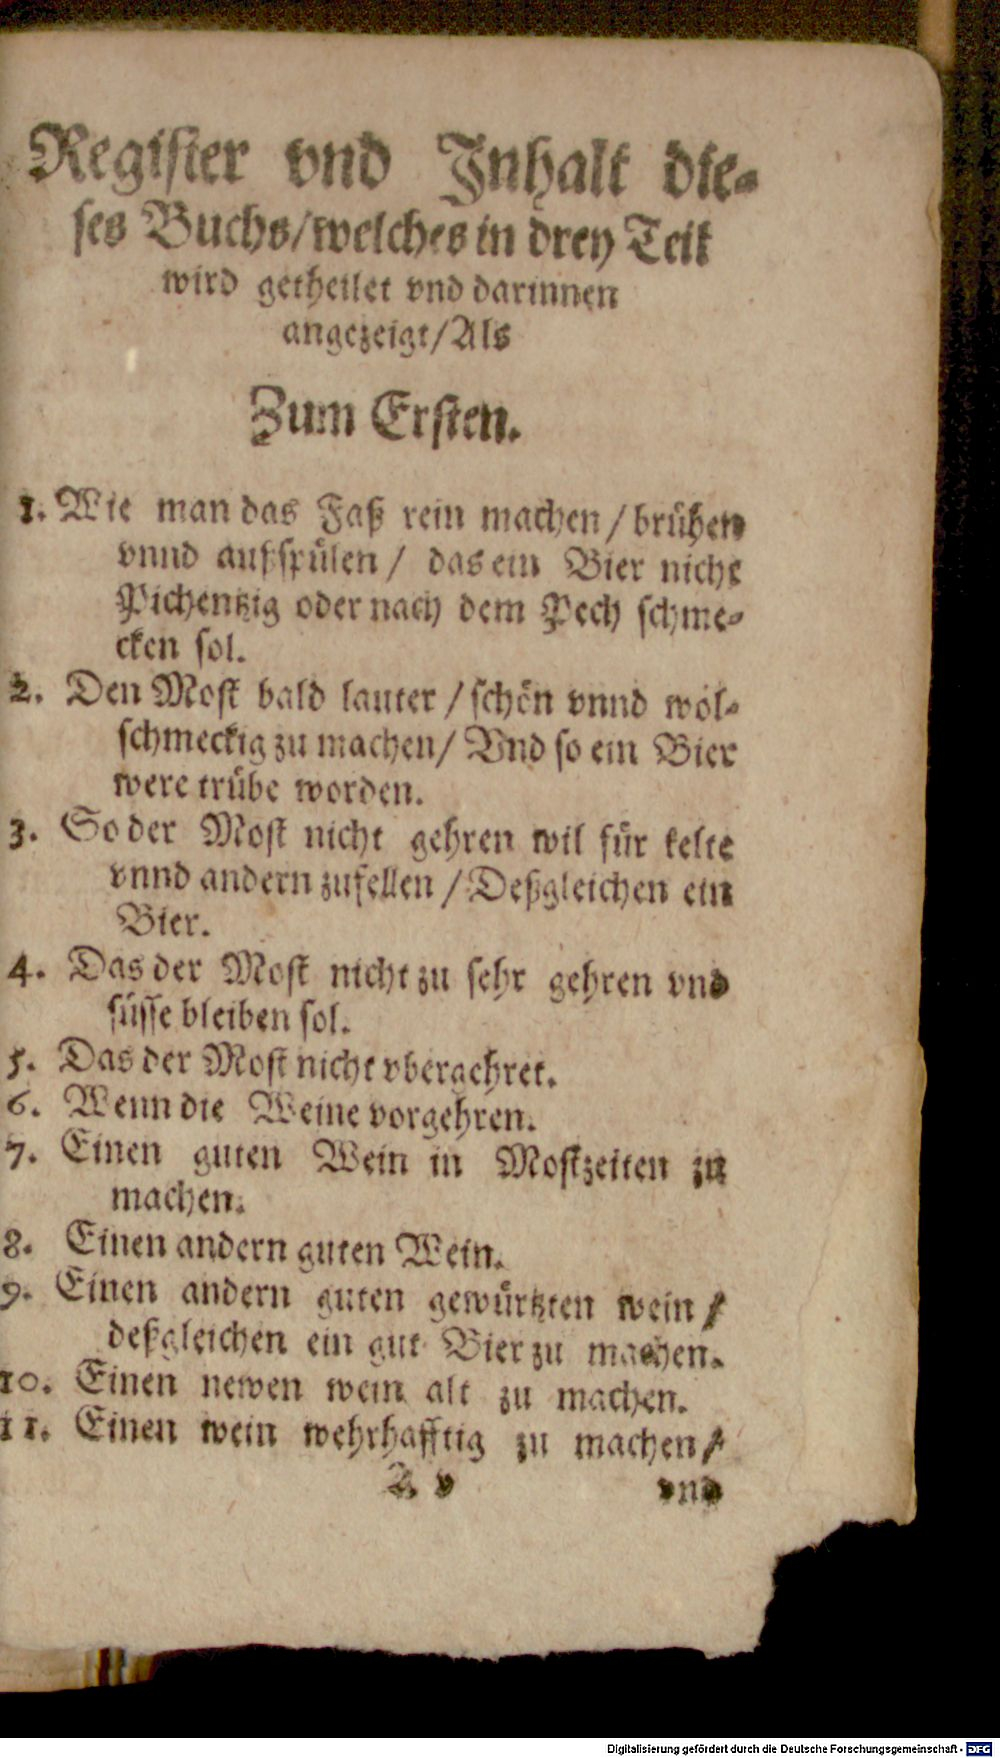 Register vnd Inhalt die-
ses Buchs/welches in drey Teil
wird getheilet vnd darinnen
angezeigt/Als
Zum Ersten.
1. Wie man das Faß rein machen/brühen
vnnd außspülen/ das ein Bier nicht
Pichentzig oder nach dem Pech schme-
cken sol.
2. Den Most bald lauter/schön vnnd wol-
schmeckig zu machen/ Vnd so ein Bier
were trübe worden.
3. So der Most nicht gehren wil für kelte
vnnd andern zufellen/Deßgleichen ein
Bier.
4. Das der Most nicht zu sehr gehren vnd
süsse bleiben sol.
5. Das der Most nicht vbergehret.
6. Wenn die Weine vorgehren.
7. Einen guten Wein in Mostzeiten zu
machen.
8. Einen andern guten Wein.
9. Einen andern guten gewürtzten wein/
deßgleichen ein gut Bier zu machen.
10. Einen newen wein alt zu machen.
11. Einen wein wehrhafftig zu machen/
A v vnd
Digitalisierung gefördert durch die Deutsche Forschungsgemeinschaft - DFG